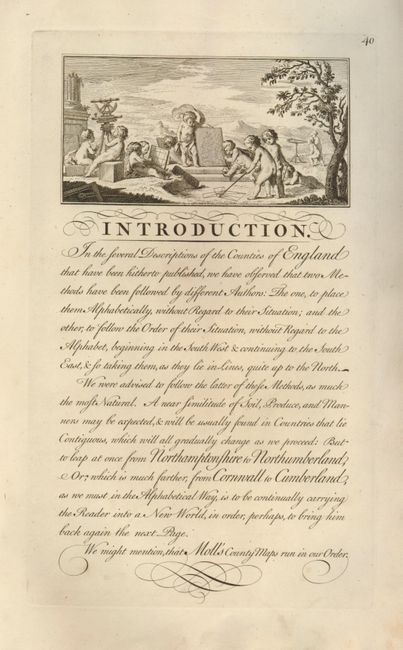 40
INTRODUCTION.
In the ſeveral Deſcriptions of the Counties of England
that have been hitherto publiſhed, we have obſerved that two Me-
thods have been followed by different Authors: The one, to place
them Alphabetically, without Regard to their Situation; and the
other, to follow the Order of their Situation, without Regard to the
Alphabet, beginning in the South Weſt & continuing to the South
Eaſt, & ſo taking them, as they lie in Lines, quite up to the North.
We were adviſed to follow the latter of theſe Methods, as much
the moſt Natural. A near ſimilitude of Soil, Produce, and Man-
ners may be expected, & will be uſually found in Countries that lie
Contiguous, which will all gradually change as we proceed: But
to leap at once from Northamptonſhire to Northumberland;
Or, which is much farther, from Cornwall to Cumberland,
as we must in the Alphabetical Way, is to be continually carrying
the Reader into a New World, in order, perhaps, to bring him
back again the next Page.
We might mention, that Moll's County Maps run in our Order.